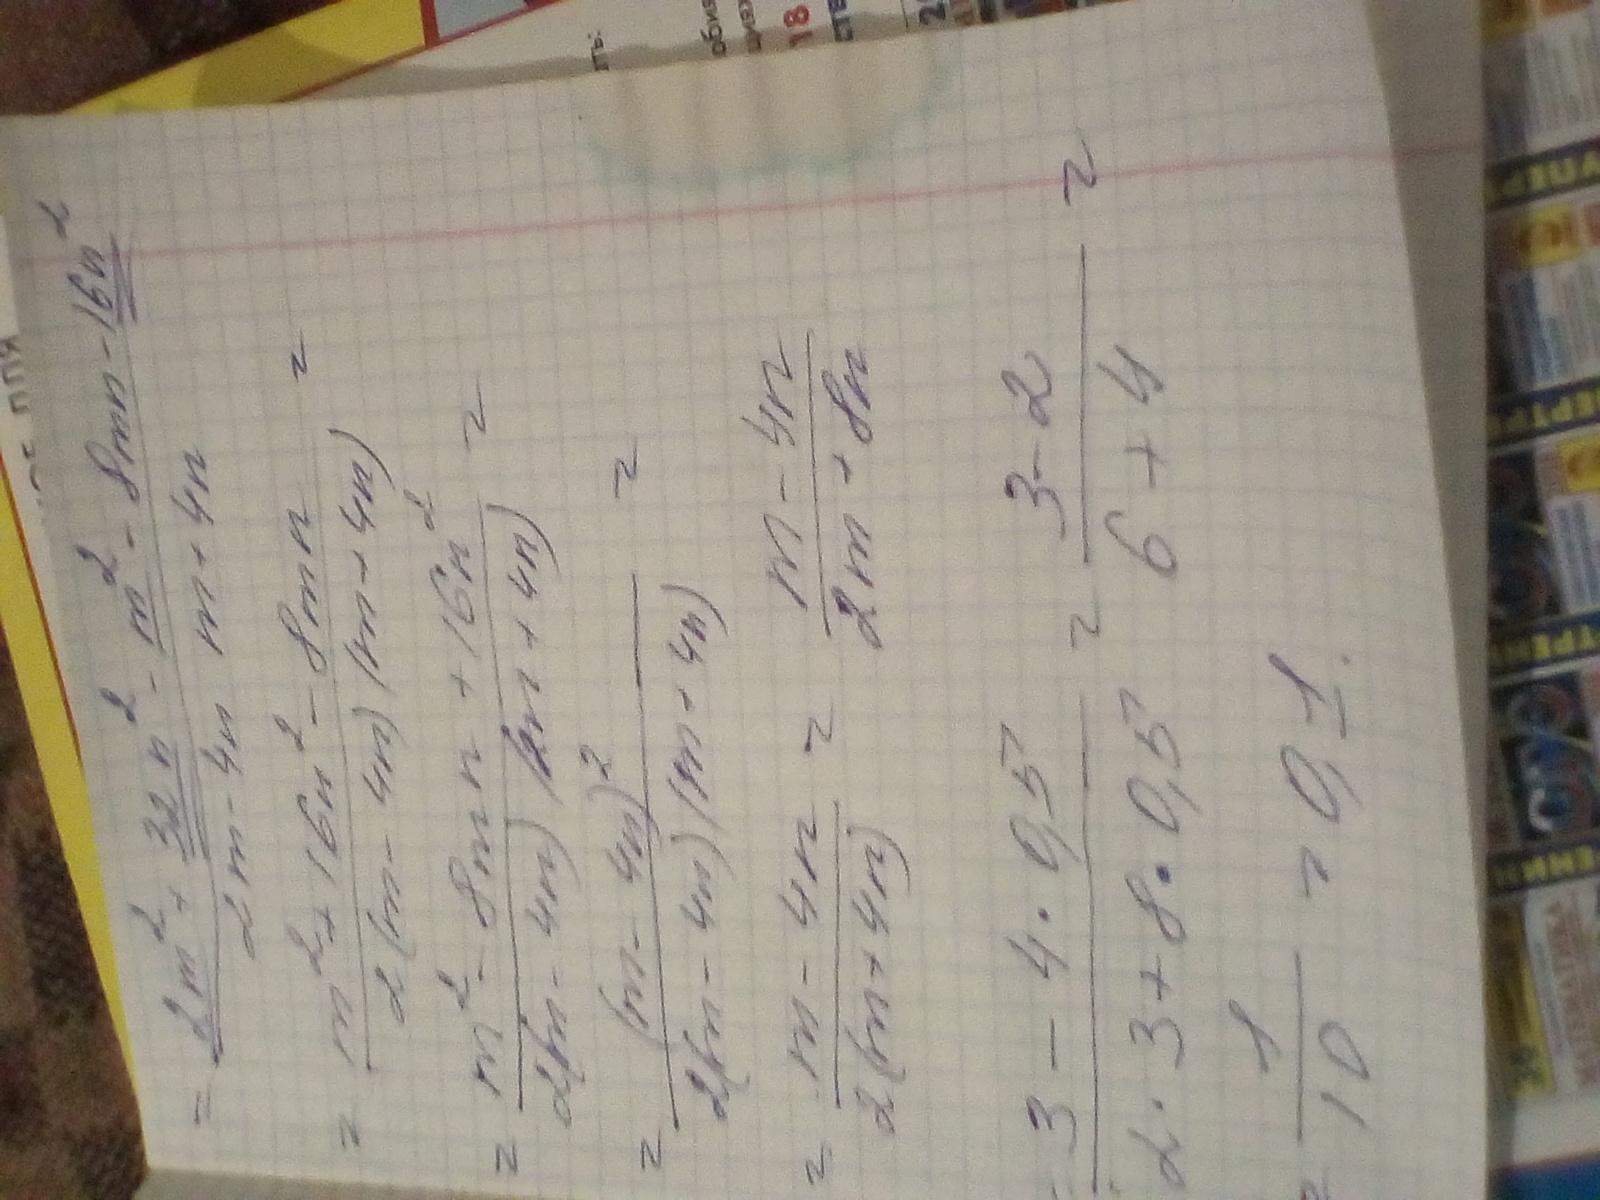 = (2m² + 32n² - m² - 8mn - 16n²) / (2m - 4n m + 4n)
= (m² + 16n² - 8mn) / (2(m - 4n)(m + 4n)) =
= (m² - 8mn + 16n²) / (2(m - 4n)(m + 4n)) =
= (m - 4n)² / (2(m - 4n)(m + 4n)) =
= (m - 4n) / (2(m + 4n)) = (m - 4n) / (2m + 8n)
= (3 - 4 · 0,5) / (2 · 3 + 8 · 0,5) = (3 - 2) / (6 + 4) =
= 1 / 10 = 0,1.
18